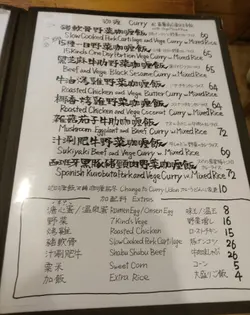 咖喱 Curry
豬軟骨野菜咖喱飯
Slow Cooked Pork Cartilage and Vege Curry w. Mixed Rice 69
15種一日野菜咖喱飯
15 Kinds One Day Portion Vege Curry w. Mixed Rice 65
黑芝麻牛肋野菜咖喱飯
Beef and Vege Black Sesame Curry w. Mixed Rice
牛油鴻雞野菜咖喱飯
Roasted Chicken and Vege Butter Curry w. Mixed Rice
椰香燒雞野菜咖喱飯
Roasted Chicken and Vege Coconut Curry w. Mixed Rice
菇菇茄子牛肋咖喱飯
Mushroom, Eggplant and Beef Curry w. Mixed Rice 72
汁涮肥牛野菜咖喱飯
Sukiyaki Beef and Vege Curry w. Mixed Rice 64
西班牙黑豚豬頸肉野菜咖喱飯
Spanish Kurobuta Pork and Vege Curry w. Mixed Rice 72
10
加配料 Extras
溏心蛋/溫泉蛋 Ramen Egg/Onsen Egg 味玉/温玉 8
野菜 7 Kinds Vege 野菜増し 16
燒雞 Roasted Chicken ローストチキン 15
豬軟骨 Slow Cooked Pork Cartilage 豚ナンコツ 26
汁涮肥牛 Shabu Shabu Beef 牛しゃぶ 26
粟米 Sweet Corn コーン 5
加飯 Extra Rice 大盛りご飯 4